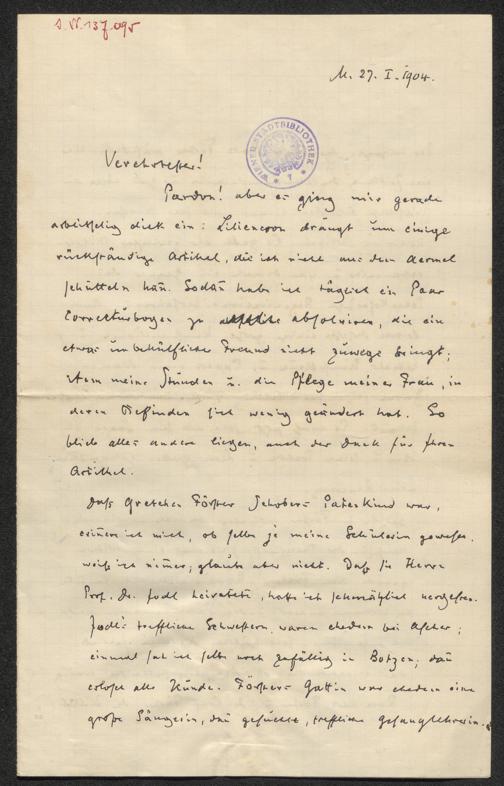 J.N. 137.095
M. 27. I. 1904.
WIENER STADTBIBLIOTHEK
Verehrtester!
Pardon! aber es ging mir gerade
arbeitselig dick ein: Liliencron draengt um einige
rückständige Artikel, die ich nicht aus dem Aermel
schütteln kañ. Sodañ habe ich täglich ein Paar
Correcturbogen zu absolviren, die ein
etwas unbehülflicher Freund nicht zuwege bringt;
item meine Stunden u. die Pflege meiner Frau, in
deren Befinden sich wenig geändert hat. So
blieb alles andere liegen, auch der Dank für Ihren
Artikel.
Daß Gretchen Förster Schobers Patenkind war,
eriñere ich mich, ob selbe je meine Schülerin gewesen,
weiß ich nim̃er, glaube aber nicht. Daß sie Herrn
Prof. Dr. Jodl heiratete, hatte ich schmählich vergessen.
Jodl's treffliche Schwestern waren ehedem bei Ascher;
einmal sah ich selbe noch zufällig in Botzen; dañ
erlosch alle Kunde. Försters Gattin war ehedem eine
große Sängerin, dañ gesuchte, treffliche Gesanglehrerin.